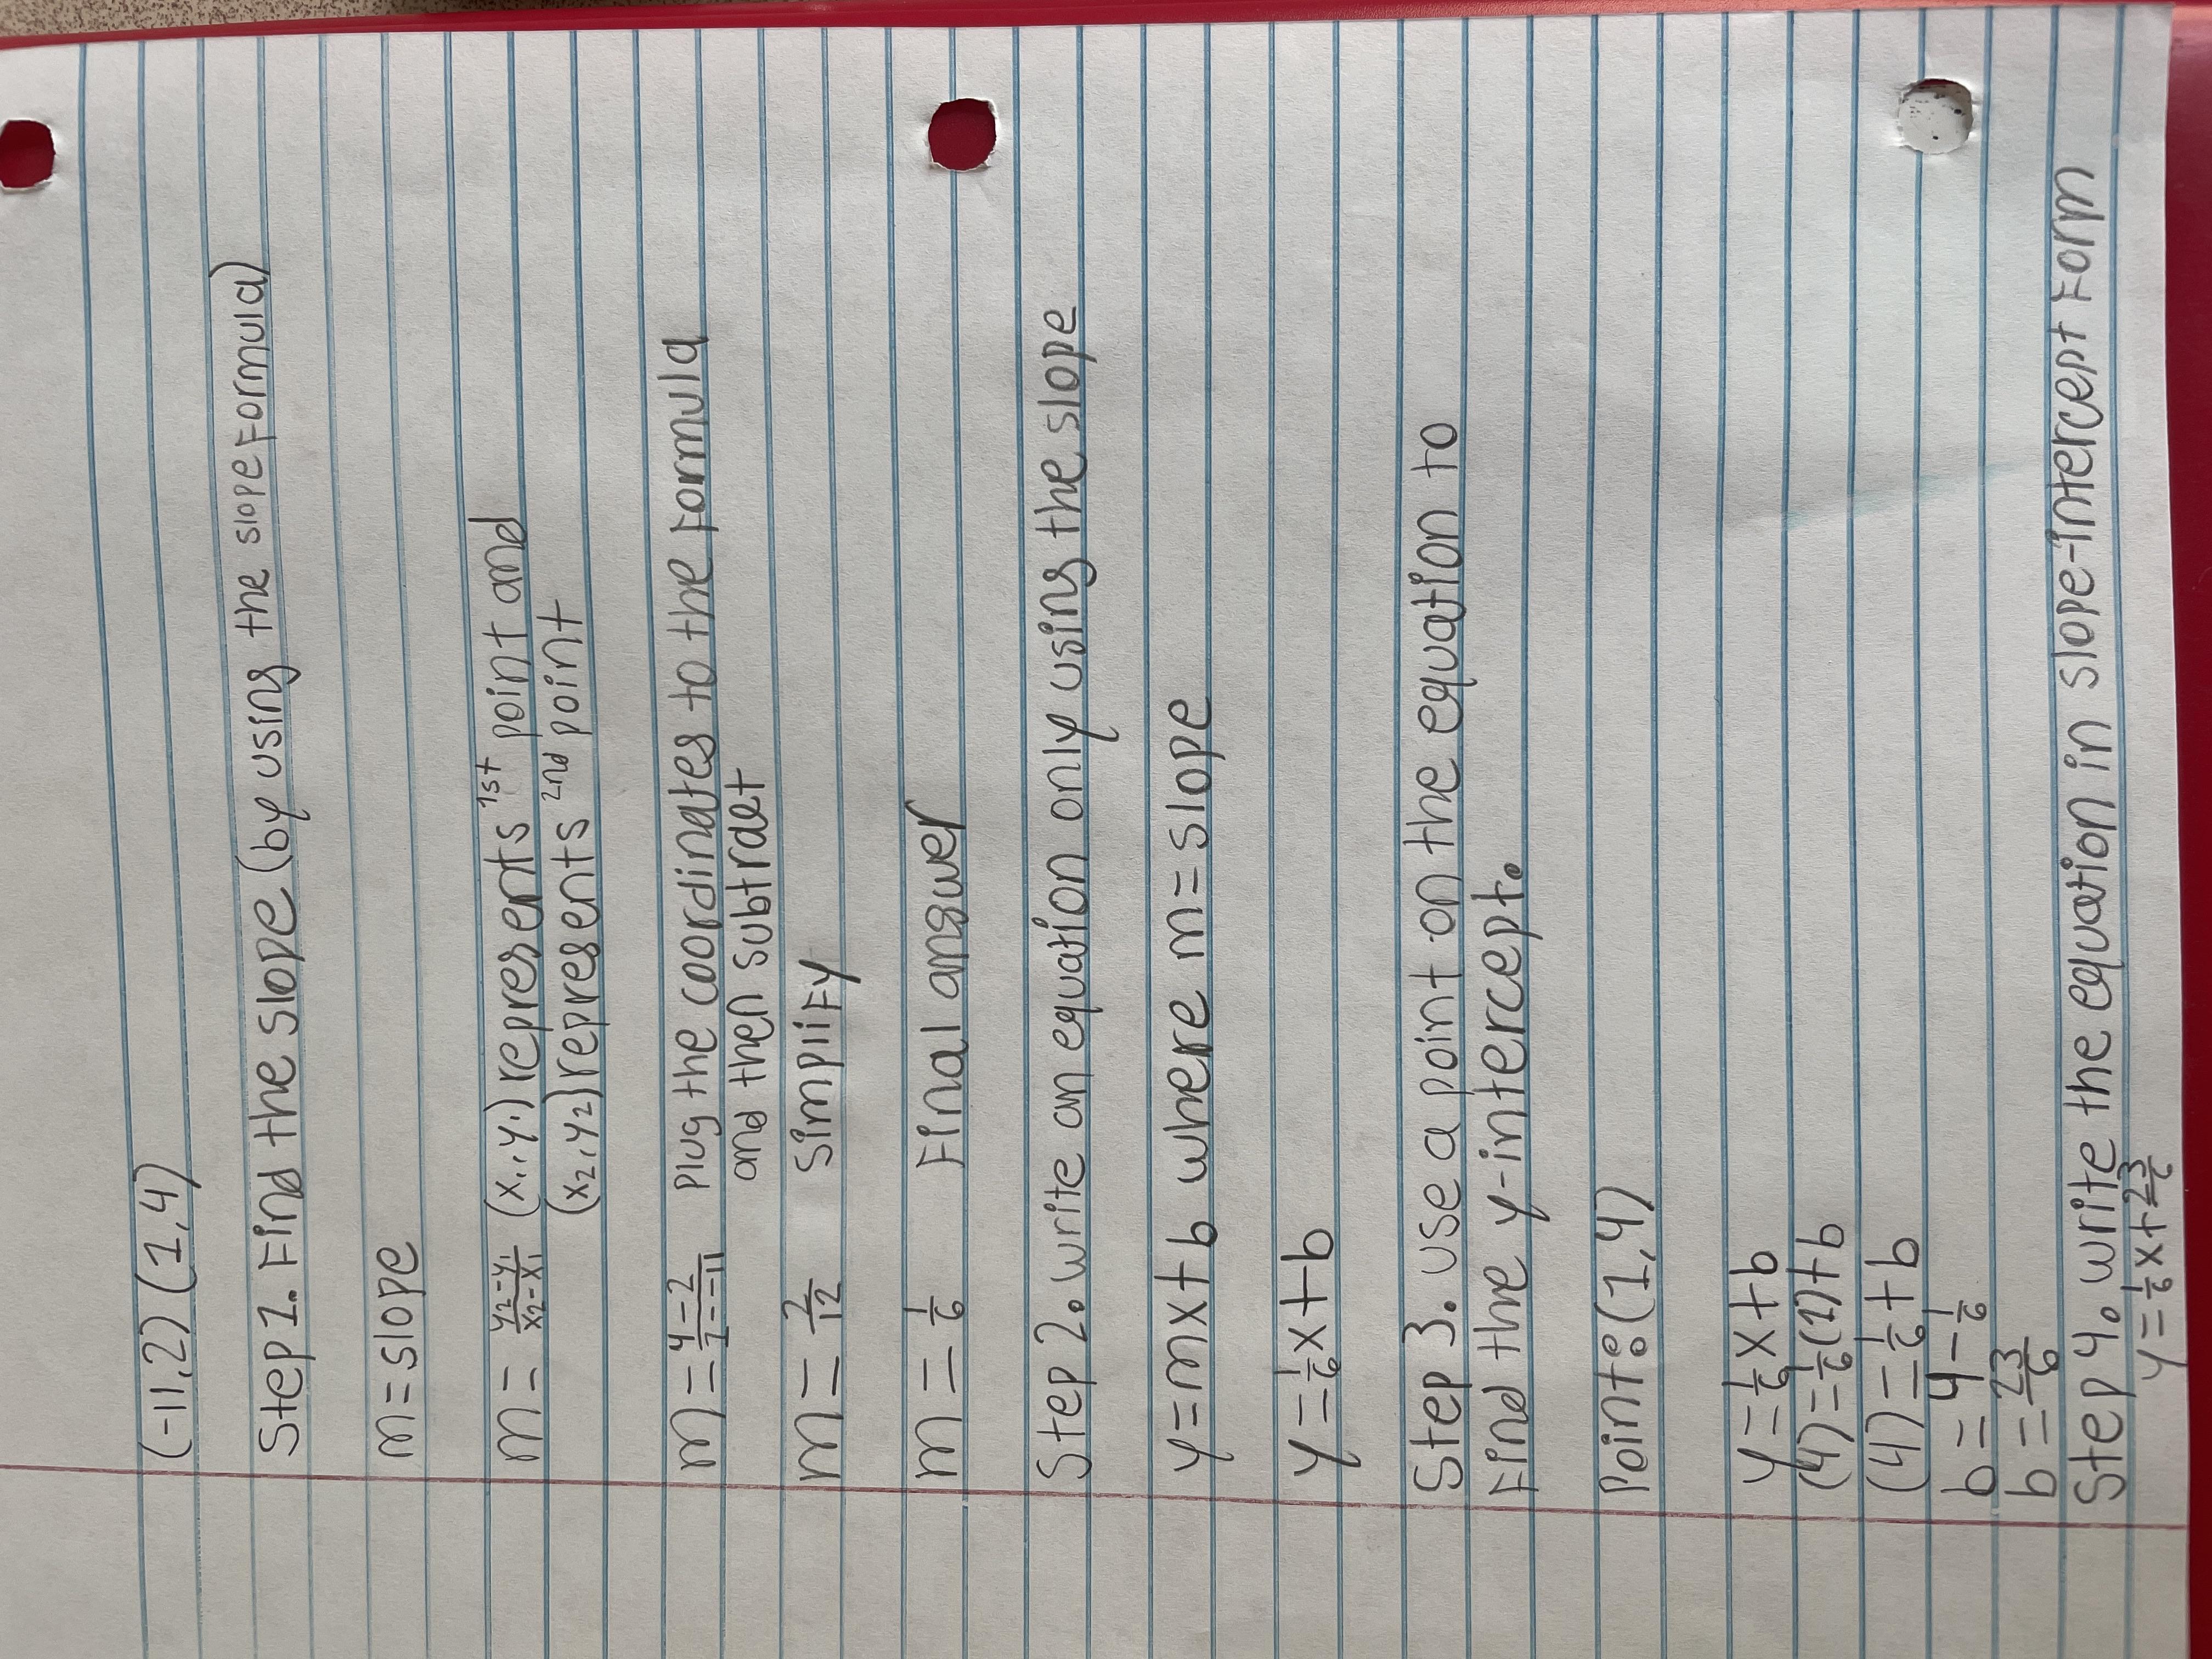 (-11,2) (1,4)
Step 1. Find the slope (by using the slope Formula)
m = slope
m = y₂-y₁/x₂-x₁ (x₁,y₁) represents 1st point and
(x₂,y₂) represents 2nd point
m = 4-2/1--11 Plug the coordinates to the Formula
and then subtract
m = 2/12 simpliFy
m = 1/6 Final answer
Step 2. write an equation only using the slope
y = mx + b where m = slope
y = 1/6x + b
Step 3. use a point on the equation to
Find the y-intercept.
Point: (1,4)
y = 1/6x + b
(4) = 1/6(1) + b
(4) = 1/6 + b
b = 4 - 1/6
b = 23/6
Step 4. write the equation in slope-intercept Form
y = 1/6x + 23/6